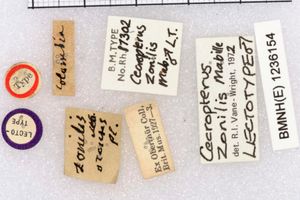 TYPE
Colombia
B.M. TYPE
No. Rh. 17302
Cecropterus
zonilis
Mab. ♂ L.T.
Cecropterus
zonilis Mabille
det. R.I. Vane-Wright, 1972
LECTOTYPE ♂
BMNH(E) 1236154
LECTO-
TYPE
zonilis
Ex Oberthür Coll.
Brit. Mus. 1927-3.